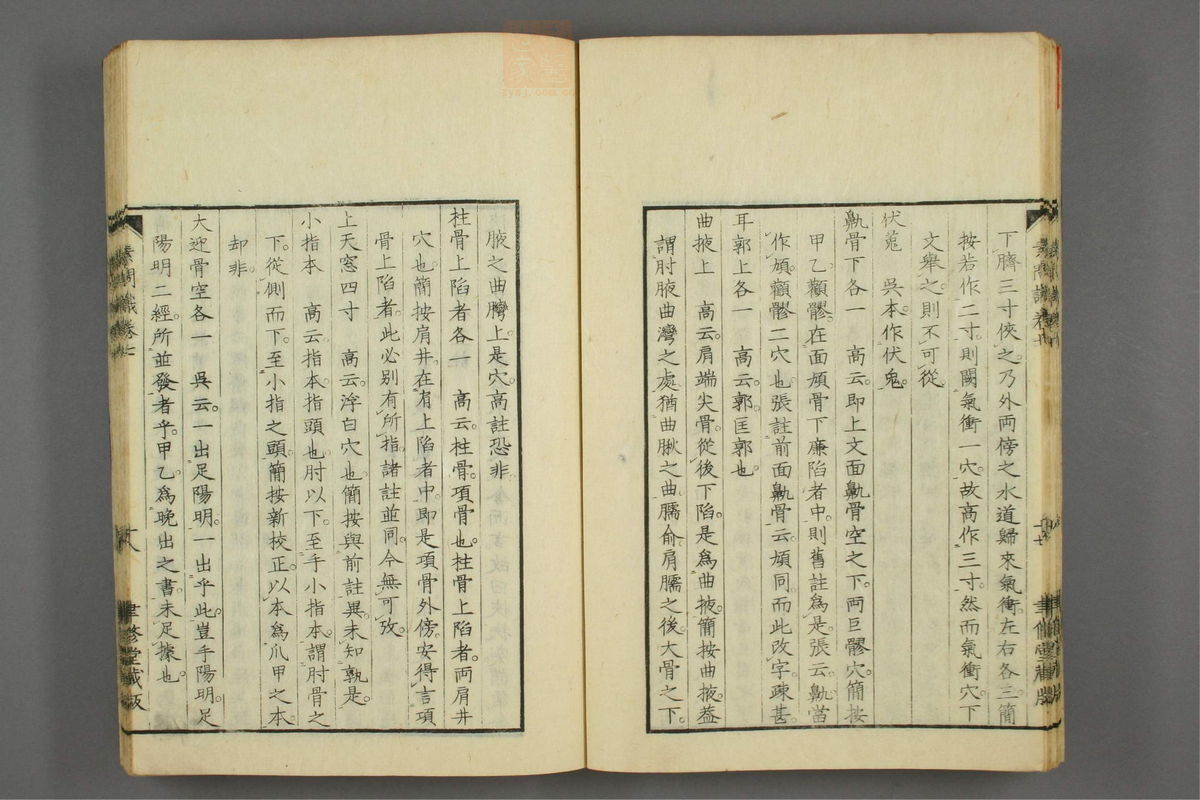 下臍三寸俠之乃外両傍之水道歸來氣衝左右各三簡
按若作二寸則闕氣衝一穴故高作三寸然而氣衝穴下
文舉之則不可從
伏菟　吳本作伏兔
鼽骨下各一　高云即上文面鼽骨空之下両巨髎穴簡按
甲乙顴髎在面頄骨下廉陷者中則舊註爲是張云鼽當
作頄顴髎二穴也張註前面鼽骨云頄同而此改字疎甚
耳郭上各一　高云郭匡郭也
曲掖上　高云肩端尖骨從後下陷是爲曲掖簡按曲掖葢
謂肘腋曲灣之處猶曲脉之曲臑俞肩臑之後大骨之下
腋之曲臑上是穴高註恐非
柱骨上陷者各一　高云柱骨項骨也柱骨上陷者両肩井
穴也簡按肩井在肩上陷者中即是項骨外傍安得言項
骨上陷者此必别有所指諸註並同今無可攷
上天窓四寸　高云浮白穴也簡按與前註異未知孰是
小指本　高云指本指頭也肘以下至手小指本謂肘骨之
下從側而下至小指之頭簡按新校正以本爲爪甲之本
却非
大迎骨空各一　吳云一出足陽明一出乎此豈手陽明足
陽明二經所並發者乎甲乙爲晚出之書未足據也
素問識卷七
聿修堂藏版